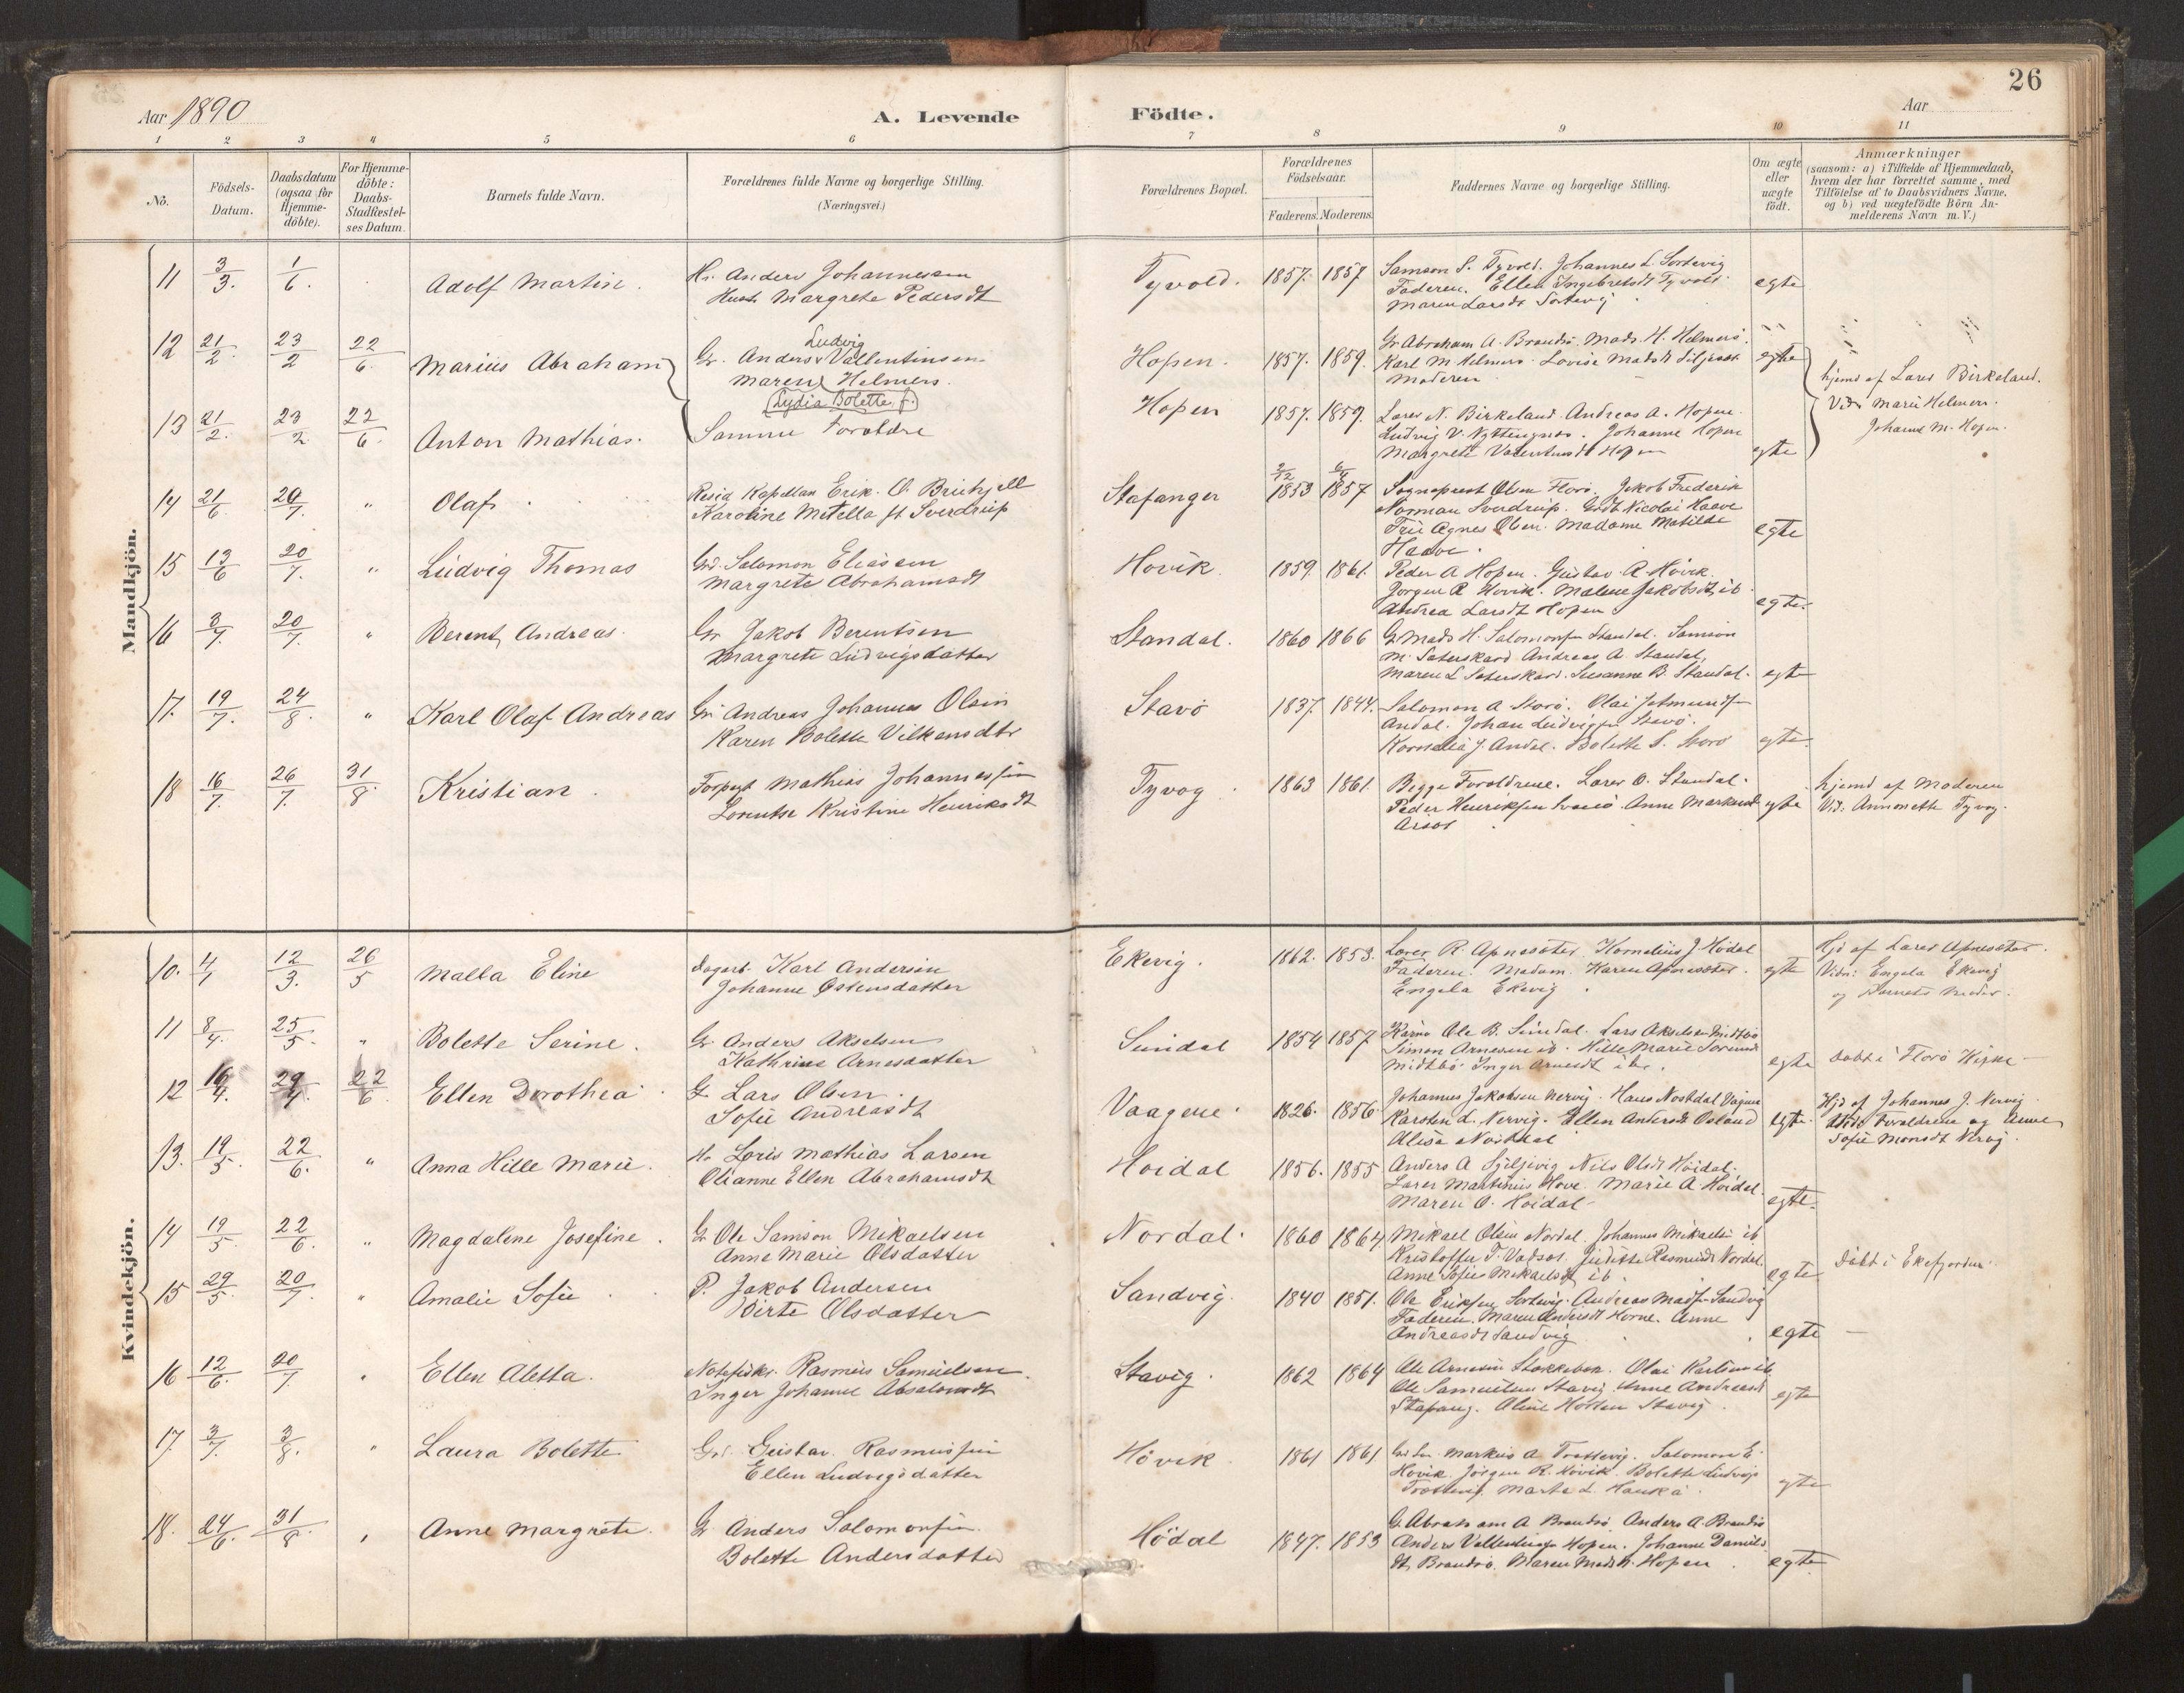 26
Aar 1890
A. Levende
Födte.
Aar
1 2 3 4 5 6 7 8 9 10 11
No.
Födsels-Datum.
Daabsdatum (ogsaa for Hjemme-döbte).
For Hjemme-döbte: Daabs-Stadfestel-ses Datum.
Barnets fulde Navn.
Forældrenes fulde Navne og borgerlige Stilling. (Næringsvei.)
Forældrenes Bopæl.
Forældrenes Födselsaar.
Faderens. Moderens.
Faddernes Navne og borgerlige Stilling.
Om ægte eller uægte födt.
Anmærkninger
(saasom: a) i Tilfælde af Hjemmedaab, hvem der har forrettet samme, med Tilföielse af to Daabsvidners Navne, og b) ved uægtefödte Börn An-melderens Navn m. V.)
Mandkjön.
11 3/3. 1/6. Adolf Martin.
Anders Johannesen
Margrete Pedersdt
Tyvold. 1857. 1857
Samson S. Tyvold. Johannes L. Sortevig
Faderen. Ellen Ingebretsdt Tyvold
Maren Larsdt Sortevig
egte
12 21/2. 23/2 22/6. Marius Abraham
Ludvig
Gr. Anders Vallentinsen
Maren Helmers.
Lydia Bolette f.
Hopen. 1857. 1859.
Gr Abraham A. Brandsö. Mads H. Helmers.
Karl M. Helmers. Lovise Madsdt
Moderen
egte
hjemd af Lars Birkeland.
Vid: Marie Helmers.
Johanne M. Hopen.
13 21/2. 23/2 22/6. Anton Mathias.
Samme Foreldre
Hopen 1857. 1859.
Lars N. Birkeland. Andreas A. Hopen.
Ludvig V. Johanne Hopen
Margrete Hopen
egte
14 21/6. 20/7. " Olaf.
Resid Kapellan Erik O.
Karoline Metella ft Sverdrup
Stafanger 2/12 1853 6/4 1857
Sogneprest Olsen Florö. Jakob Frederik
Norman Sverdrup. Nicolai Haave
Frü Agnes Olsen. Madame Matilde
Haave.
egte
15 13/6 20/7. " Ludvig Thomas
Grd. Salomon Eliasen
Margrete Abrahamsdt
Hovik. 1859. 1861.
Peder A Hopen. Gustav R. Hövik.
Jörgen R Hovik. Malene Jakobsdt, ib.
Andrea Larsdt Hopen
egte.
16 3/7. 20/7. " Berent Andreas.
Gr Jakob Berentsen
Margrete Ludvigsdatter
Standal. 1860 1866
Gr Mads H. Salomonsen Standal. Samson
M. Seterskard Andreas A. Standal,
Maren L Seterskard. Susanne B. Standal.
egte
17. 19/7. 24/8. " Karl Olaf Andreas
Gr Andreas Johannes Olsen
Karen Bolette Vilkensdtr
Stavö 1837. 1844.
Salomon A. Storö. Olai
Andal. Johan Ludvigsen Stavö.
Kornelia J. Andal. Bolette S. Storö
egte.
18 16/7. 26/7. 31/8. Kristian.
Forpagt Mathias Johannessen
Lorentse Kristine Henriksdt
Tyvog. 1863 1861.
Begge Foreldrene. Lars O. Standal.
Peder Henriksen Anne
egte
hjemd af Moderen
Vid: Annanette Tyvog.
Kvindekjön.
10. 4/1 12/3. 26/5 Malla Eline
Dagarb. Karl Andersen
Johanne Östensdatter
Ekevig. 1862. 1853.
Lars R. Apneseter Kornelius J Hödal
Faderen. Madam. Karen Apneseter.
Engela Ekevig
egte
Hjd af Lars Apneseter.
Vidn: Engela Ekevig
og Barnets Moder.
11 8/4. 25/5. " Bolette Serine.
Gr. Anders Akselsen
Kathrine Arnesdatter
Sundal 1854 1857
Ole B. Sundal. Lars Akselsen Midtbö
Simon Arnesen ib. Hille Marie
Midtbö. Inger Arnesdt ib.
egte
döbt i Florö Kirke
12 16/4. 29/4. 22/6 Ellen Dorothea
Gr Lars Olsen.
Sofie Andreasdt
Vaagene. 1826. 1856
Johannes Jakobsen Nervig. Hans Nostdal
Karsten L. Nervig. Ellen Andersdt Osland
egte.
Hjd af Johannes J. Nervig
Foreldrene og Anne
Sofie Monsdt
13. 19/5. 22/6. " Anna Hille Marie.
Mathias Larsen
Olianne Ellen Abrahamsdt
Hoidal 1856. 1855
Anders A Nils Olsdt Höidal.
Lars Martinius Hove. Marie A. Hoidal.
Maren O. Hoidal
egte.
14 19/5. 22/6. " Magdalene Josefine.
Gr Ole Samson Mikaelsen
Anne Marie Olsdatter
Nordal. 1860 1864
Mikael Olsen Nordal. Johannes Mikaelsen ib
Kristoffer T. Judithe Rasmusdt Nordal
Anne Sofie Mikaelsdt ib.
egte
Döbt i Ekefjorden
15 29/5. 20/7. " Amalie Sofie
P. Jakob Andersen
Birte Olsdatter
Sandvig. 1840 1851.
Ole Eriksen Sortevig. Andreas Sandvig
Faderen. Maren Andersdt Horne. Anne
Andreasdt Sandvig
egte
16 12/6. 20/7. " Ellen Aletta.
Notefisker. Rasmus Samuelsen
Inger Johanne Absalonsdt
Stavig. 1862 1864
Ole Arnesen Olai Karlsen ib
Ole Samuelsen Stavig. Anne Andreasdt
Stapang. Stavig.
egte
17. 3/7. 3/8. " Laura Bolette
Gustav. Rasmussen
Ellen Ludvigsdatter
Hövik 1861 1861
Markus A Trottevig. Salomon E.
Hövik. Jörgen R. Hövik. Bolette
Trottevig. Marta L. Haukå.
egte
18. 24/6. 31/8. " Anne Margrete.
Gr Anders Salomonsen.
Bolette Andersdatter
Hödal 1847. 1853
Gr Abraham A Brandsö. Anders A. Brandsö
Anders Vallentinsen Hopen. Johanne Daniels
dt, Brandsö. Maren Madsdt. Hopen.
egte